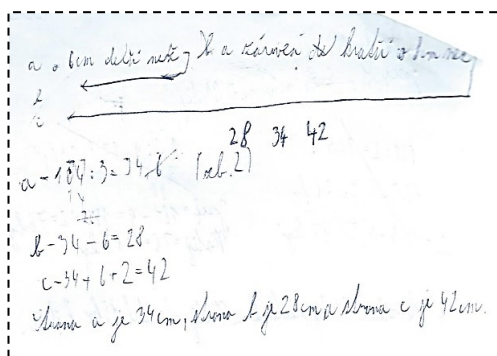 a o 6cm delší než b a zároveň kratší o
b
c
28 34 42
a - 104 : 3 = 34
b - 34 - 6 = 28
c - 34 + 6 + 2 = 42
Strana a je 34cm, strana b je 28cm, a strana c je 42cm.